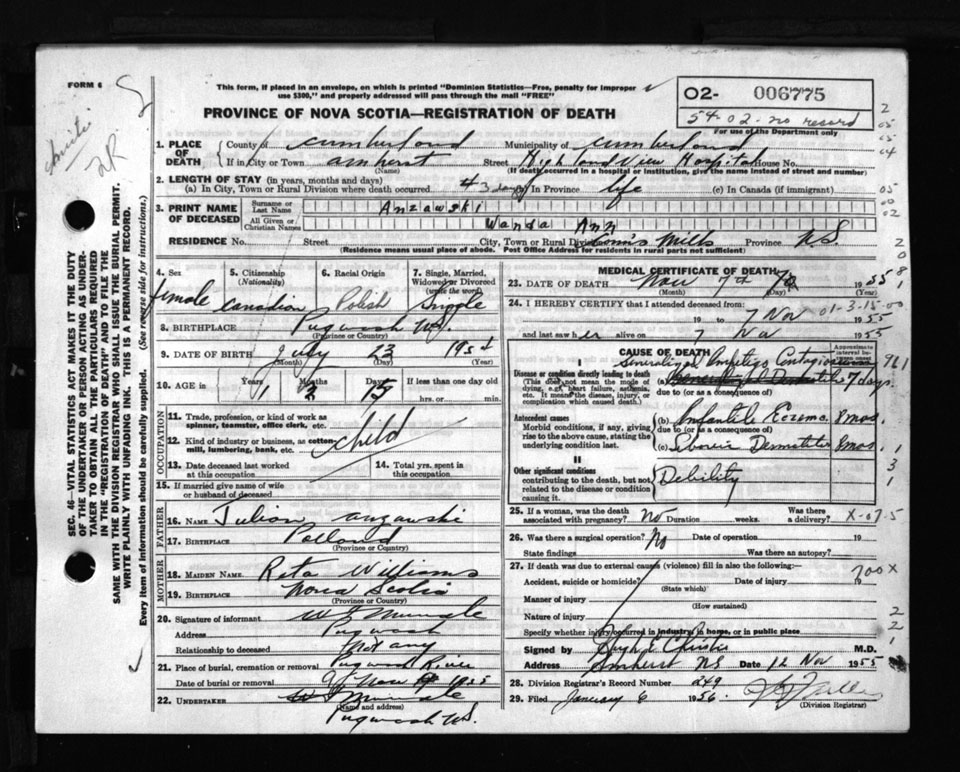 FORM 6
This form, if placed in an envelope, on which is printed "Dominion Statistics—Free, penalty for improper
use $300," and properly addressed will pass through the mail "FREE"
PROVINCE OF NOVA SCOTIA—REGISTRATION OF DEATH
02- 006775
54-02-no record
For use of the Department only
1. PLACE OF DEATH
County of Cumberland Municipality of Cumberland
If in City or Town Amherst Street Highland View Hospital House No.
(Name) (If death occurred in a hospital or institution, give the name instead of street and number)
2. LENGTH OF STAY (in years, months and days)
(a) In City, Town or Rural Division where death occurred 43 days In Province life (c) In Canada (if immigrant)
3. PRINT NAME OF DECEASED
Surname or Last Name Anzawski
All Given or Christian Names Wanda Ann
RESIDENCE No. Street City, Town or Rural Division Mills Province N.S.
(Residence means usual place of abode. Post Office Address for residents in rural parts not sufficient)
4. Sex female
5. Citizenship (Nationality) Canadian
6. Racial Origin Polish
7. Single, Married, Widowed or Divorced (write the word) Single
8. BIRTHPLACE Pugwash N.S.
(Province or Country)
9. DATE OF BIRTH July 23 1954
(Month) (Day) (Year)
10. AGE in Years 1 Months Days If less than one day old
hrs. or min.
OCCUPATION
11. Trade, profession, or kind of work as spinner, teamster, office clerk, etc.
12. Kind of industry or business, as cotton-mill, lumbering, bank, etc.
child
13. Date deceased last worked at this occupation
14. Total yrs. spent in this occupation
15. If married give name of wife or husband of deceased
FATHER
16. NAME Julian Anzawski
17. BIRTHPLACE Poland
(Province or Country)
MOTHER
18. MAIDEN NAME Rita Williams
19. BIRTHPLACE Nova Scotia
(Province or Country)
20. Signature of informant
Address Pugwash
Relationship to deceased not any
21. Place of burial, cremation or removal Pugwash River
Date of burial or removal 9 Nov 1955
22. UNDERTAKER
(Name and address)
Pugwash N.S.
MEDICAL CERTIFICATE OF DEATH
23. DATE OF DEATH Nov 7th 1955
(Month) (Day) (Year)
24. I HEREBY CERTIFY that I attended deceased from
01-3-15-00
19 to 7 Nov 1955
and last saw her alive on 7 1955
CAUSE OF DEATH
Approximate interval between onset and death
I
Disease or condition directly leading to death
(This does not mean the mode of dying, e.g., heart failure, asthenia, etc. It means the disease, injury, or complication which caused death.)
Generalized Impetigo Contagiosa
(a) 7 days
due to (or as a consequence of)
Antecedent causes
Morbid conditions, if any, giving rise to the above cause, stating the underlying condition last.
(b) Infantile Eczema 8 mos.
due to (or as a consequence of)
(c) Dermatitis 8 mos.
II
Other significant conditions
contributing to the death, but not related to the disease or condition causing it.
Debility
961
25. If a woman, was the death associated with pregnancy? No Duration weeks. Was there a delivery? X-07-5
26. Was there a surgical operation? No Date of operation 19
State findings Was there an autopsy?
27. If death was due to external causes (violence) fill in also the following:—
700X
Accident, suicide or homicide? Date of injury 19
(State which)
Manner of injury
(How sustained)
Nature of injury
Specify whether injury occurred in industry, in home, or in public place
Signed by Hugh E. Christie M.D.
Address Amherst NS Date 12 Nov 1955
28. Division Registrar's Record Number 249
29. Filed January 6 1956
(Division Registrar)
SEC. 46—VITAL STATISTICS ACT MAKES IT THE DUTY
OF THE UNDERTAKER OR PERSON ACTING AS UNDER-
TAKER TO OBTAIN ALL THE PARTICULARS REQUIRED
IN THE "REGISTRATION OF DEATH" AND TO FILE THE
SAME WITH THE DIVISION REGISTRAR WHO SHALL ISSUE THE BURIAL PERMIT.
WRITE PLAINLY WITH UNFADING INK. THIS IS A PERMANENT RECORD.
Every item of information should be carefully supplied. (See reverse side for instructions.)